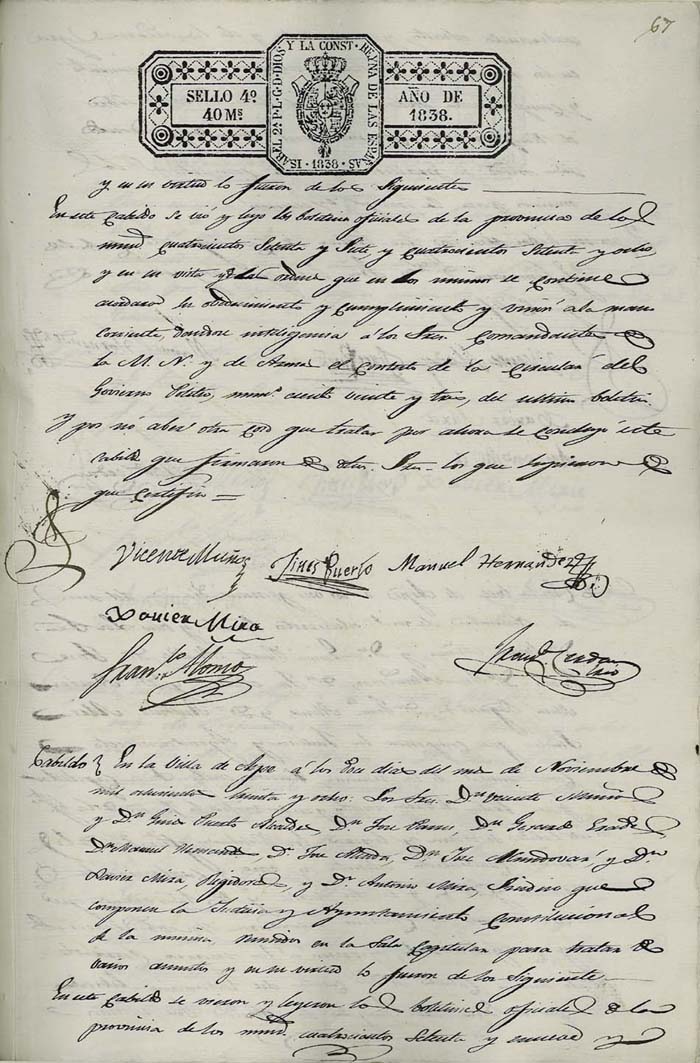 67
SELLO 4º
40 Mˢ
ISABEL 2ª P.L.G.D.DIOS Y LA CONST. REYNA DE LAS ESPAÑAS
1838
AÑO DE
1838.
y en su virtud lo fueron de los siguientes
En este Cabildo se vió y leyó los boletines oficiales de la provincia de los
numˢ cuatrocientos setenta y siete y cuatrocientos setenta y ocho,
y en su vista y ordenes que en los mismos se contiene
acordaron su obedecimiento y cumplimiento y unirse á la mano
corriente, dandose inteligencia á los Sres. Comandantes de
la M. N. y de Armas el contesto de la circular del
Govierno Politico, numº ciento veinte y tres, del ultimo boletin.
Y por nó aber otra cosa que tratar por ahora se concluyó este
cabildo que firmaron de dhos. Sres. los que supieron de
que certifico =
Vicente Muños
Gines Puerto
Manuel Hernandez
Xavier Mira
Franᶜᵒ Alonso
Cabildo
En la Villa de Aspe á los dos dias del mes de Noviembre de
mil ochocientos treinta y ocho: Los Sres. Dⁿ Vicente Muños
y Dⁿ Gines Puerto Alcaldes Dⁿ Jose Dⁿ Gerardo
Dⁿ Manuel Hernandez Dⁿ Jose Dⁿ Jose y Dⁿ
Xavier Mira, Regidores, y Dⁿ Antonio Mira, Sindico que
componen la Justicia y Ayuntamiento Constitucional
de la misma, reunidos en la Sala Capitular para tratar de
varios asuntos y en su virtud lo fueron de los siguientes
En este Cabildo se vieron y leyeron los boletines oficiales de la
provincia de los numˢ cuatrocientos setenta y nueve y